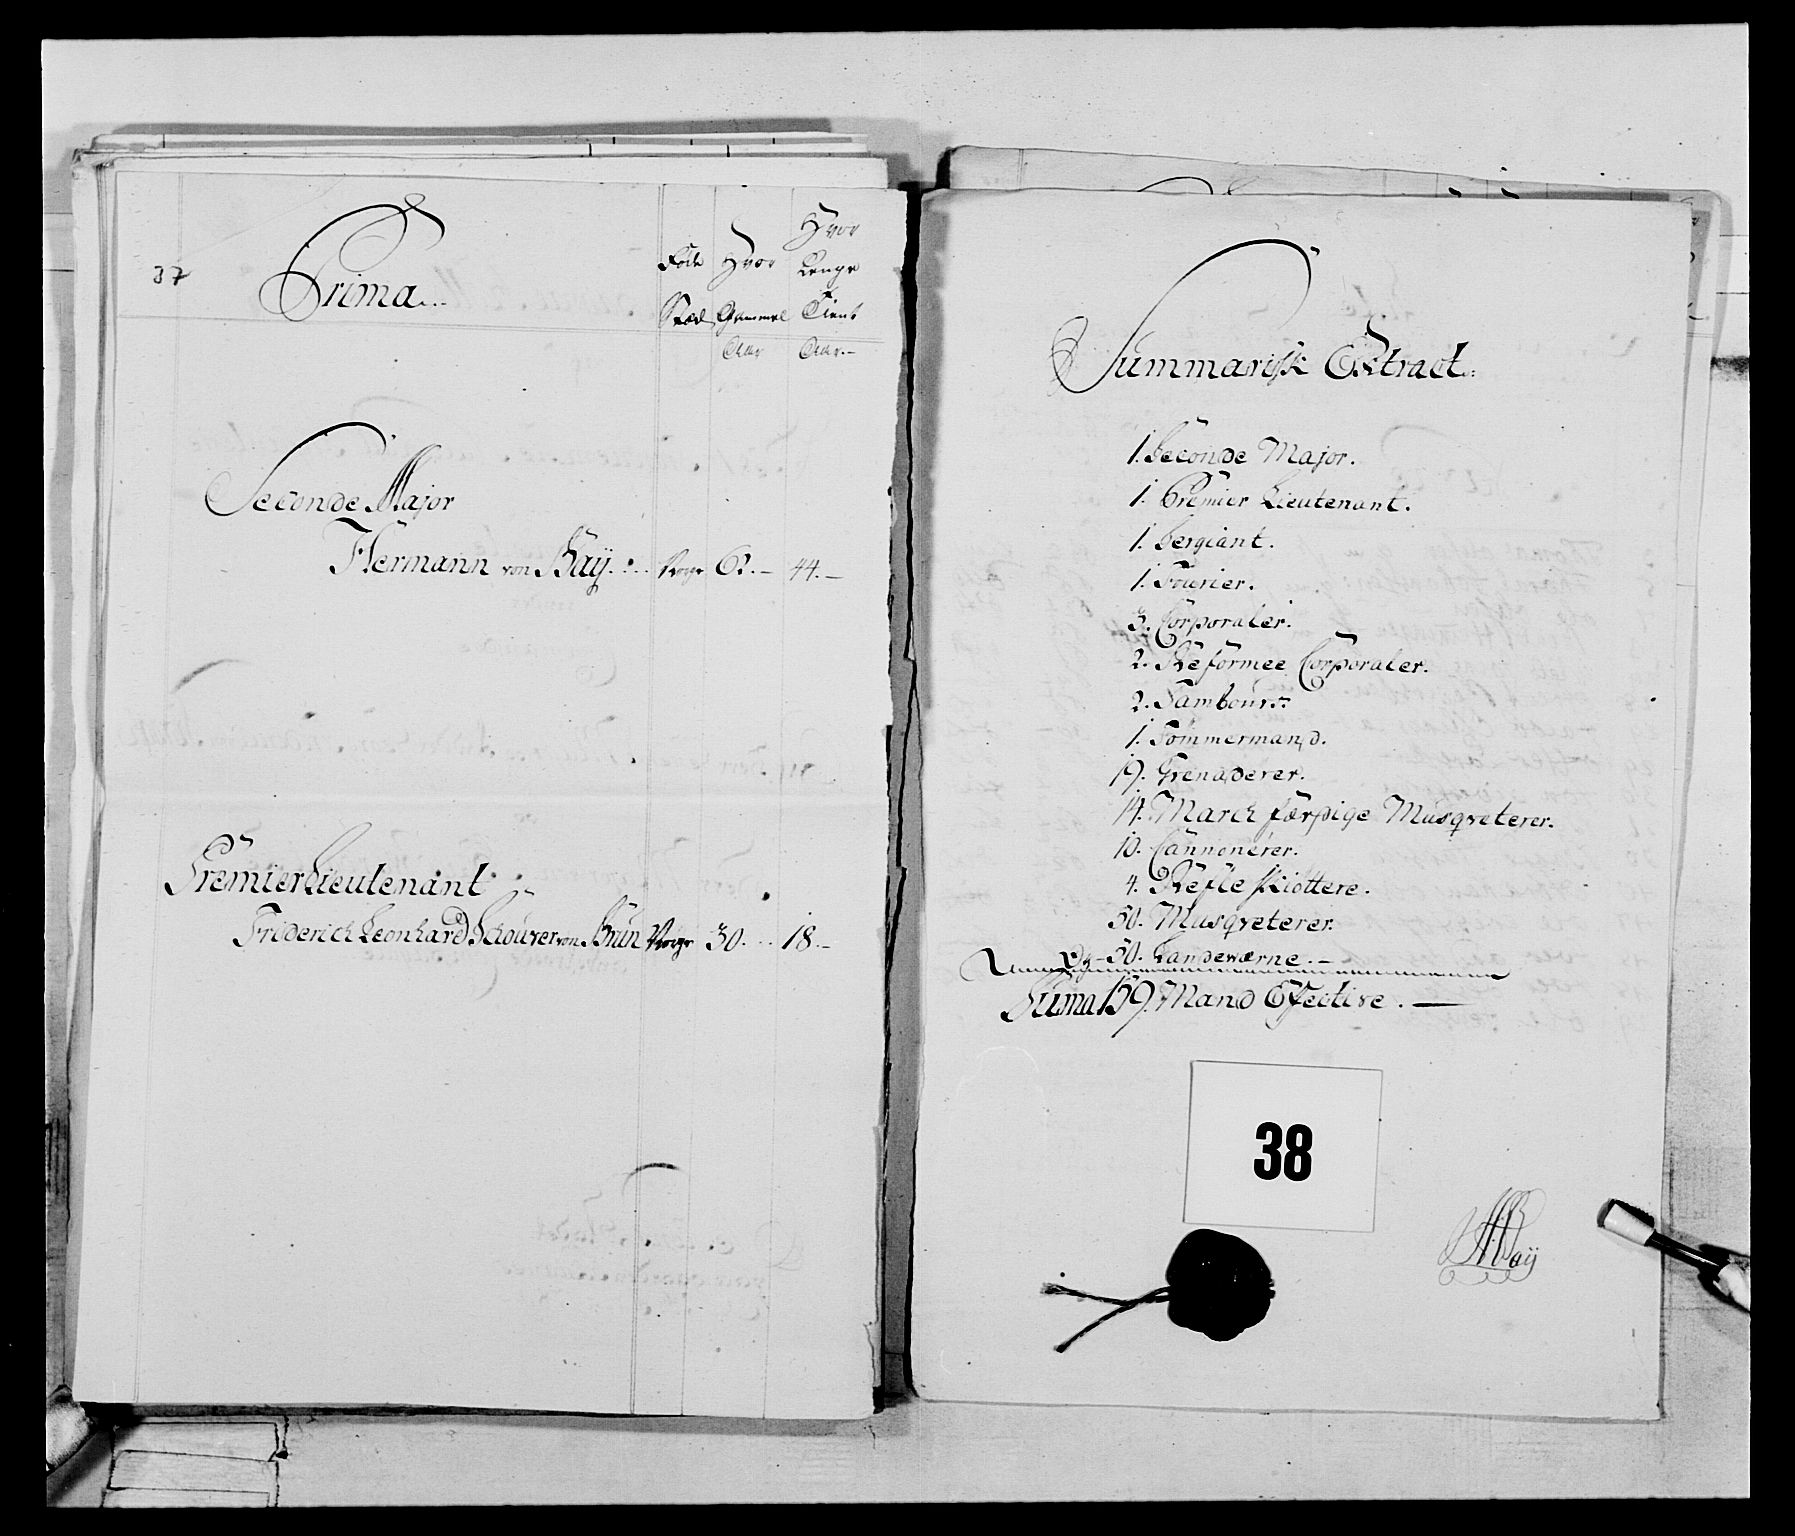 37
Prima...
Føde Sted
Hvor Gammel Aar
Hvor Lenge Tient Aar.-
Seconde Major
Hermann von Kaÿ.... Norge 62.- 44.-
Premier Lieutenant
Friderich Leonhard Schouver von Brün Norge 30... 18.-
Summarisk Extract.:
1. Seconde Major.
1. Premier Lieutenant.
1. Sergiant.
1. Fourier.
3. Corporaler.
2. Reformee Corporaler.
2. Tambours.
1. Tömmermand.
19. Grenaderer.
14. March færdige Musqveterer.
10. Cannonerer.
4. Refle skiøttere.
50. Musqveterer.
Og 50. Landeværne.-
Suma 159. Mand Effective.
38